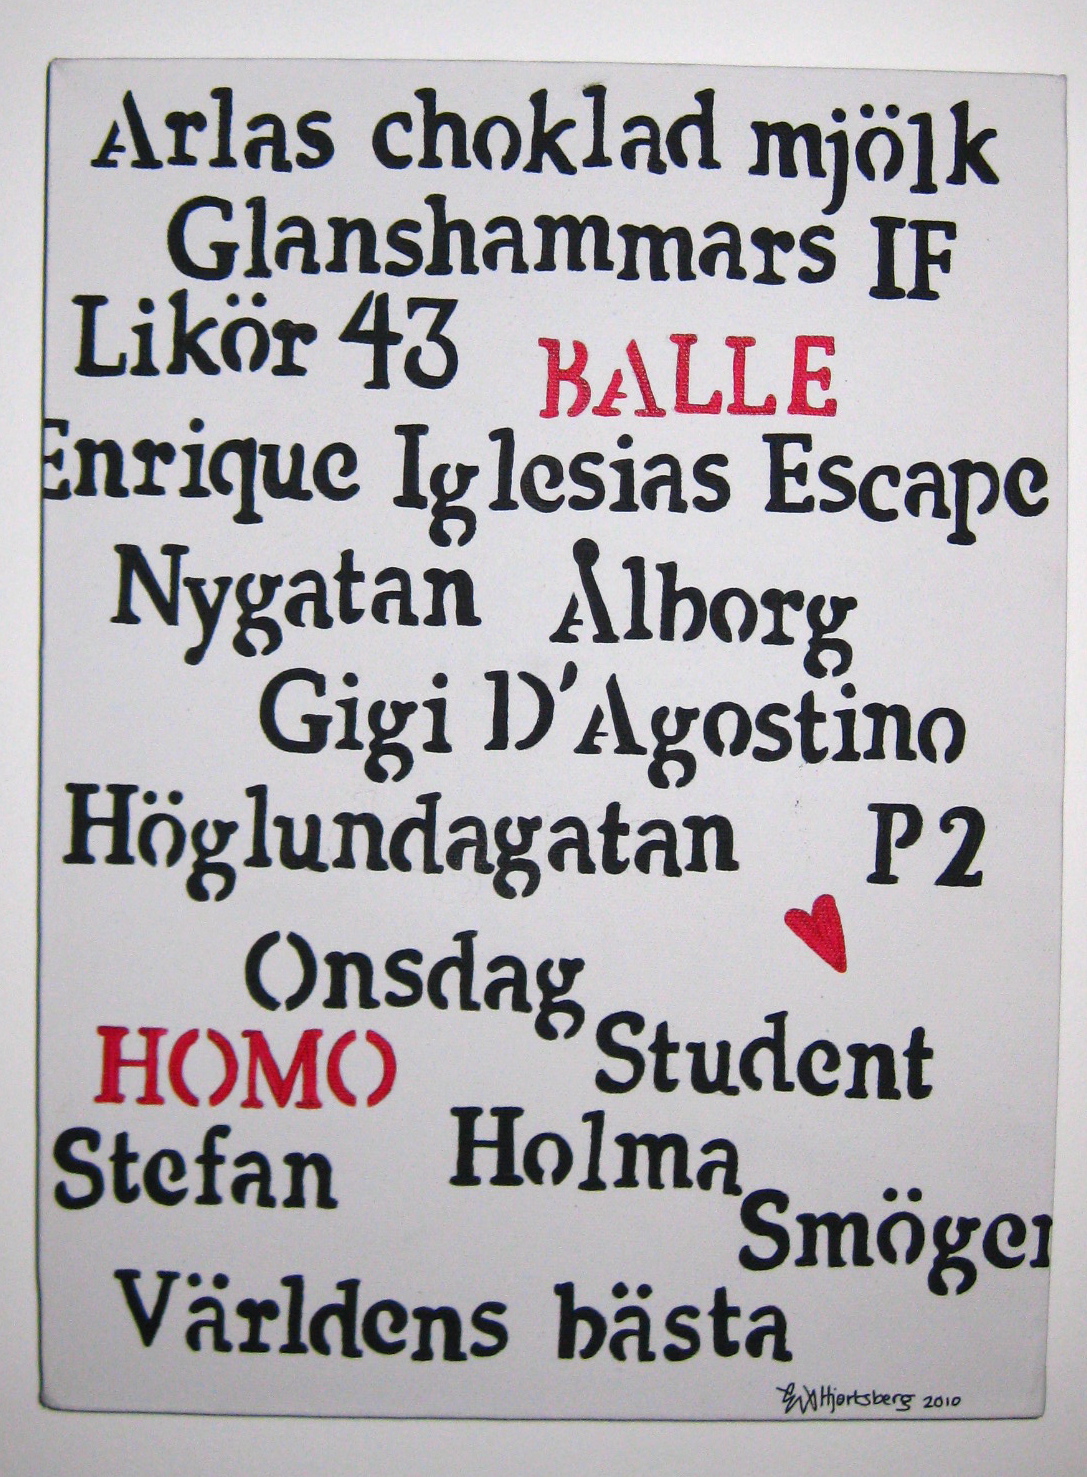 Arlas choklad mjölk
Glanshammars IF
Likör 43
BALLE
Enrique Iglesias Escape
Nygatan Ålborg
Gigi D'Agostino
Höglundagatan P2
Onsdag
Student
HOMO
Holma
Stefan
Smögen
Världens bästa
Hjortsberg 2010